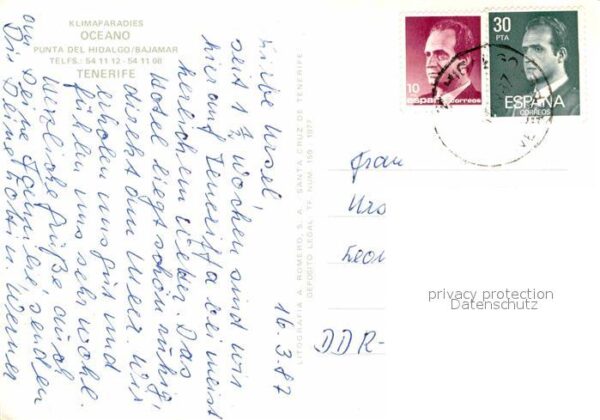 KLIMAPARADIES
OCEANO
PUNTA DEL HIDALGO/BAJAMAR
TELFS.: 54 11 12 - 54 11 08
TENERIFE
16.3.87
Liebe Ursel,
seit 1 1/2 Wochen sind wir
hier auf Teneriffa bei meist
herrlichem Wetter. Das
Hotel liegt schön ruhig,
direkt am Meer. Wir
erholen uns gut und
fühlen uns sehr wohl.
Herzliche Grüße auch
an Deine Familie, senden
Dir Deine u. Werner
LITOGRAFIA A. ROMERO, S. A. SANTA CRUZ DE TENERIFE
DEPOSITO LEGAL TF. NUM. 159 - 1977
10
españa correos
30
PTA
ESPAÑA
CORREOS
Frau
Urs
DDR-
privacy protection
Datenschutz